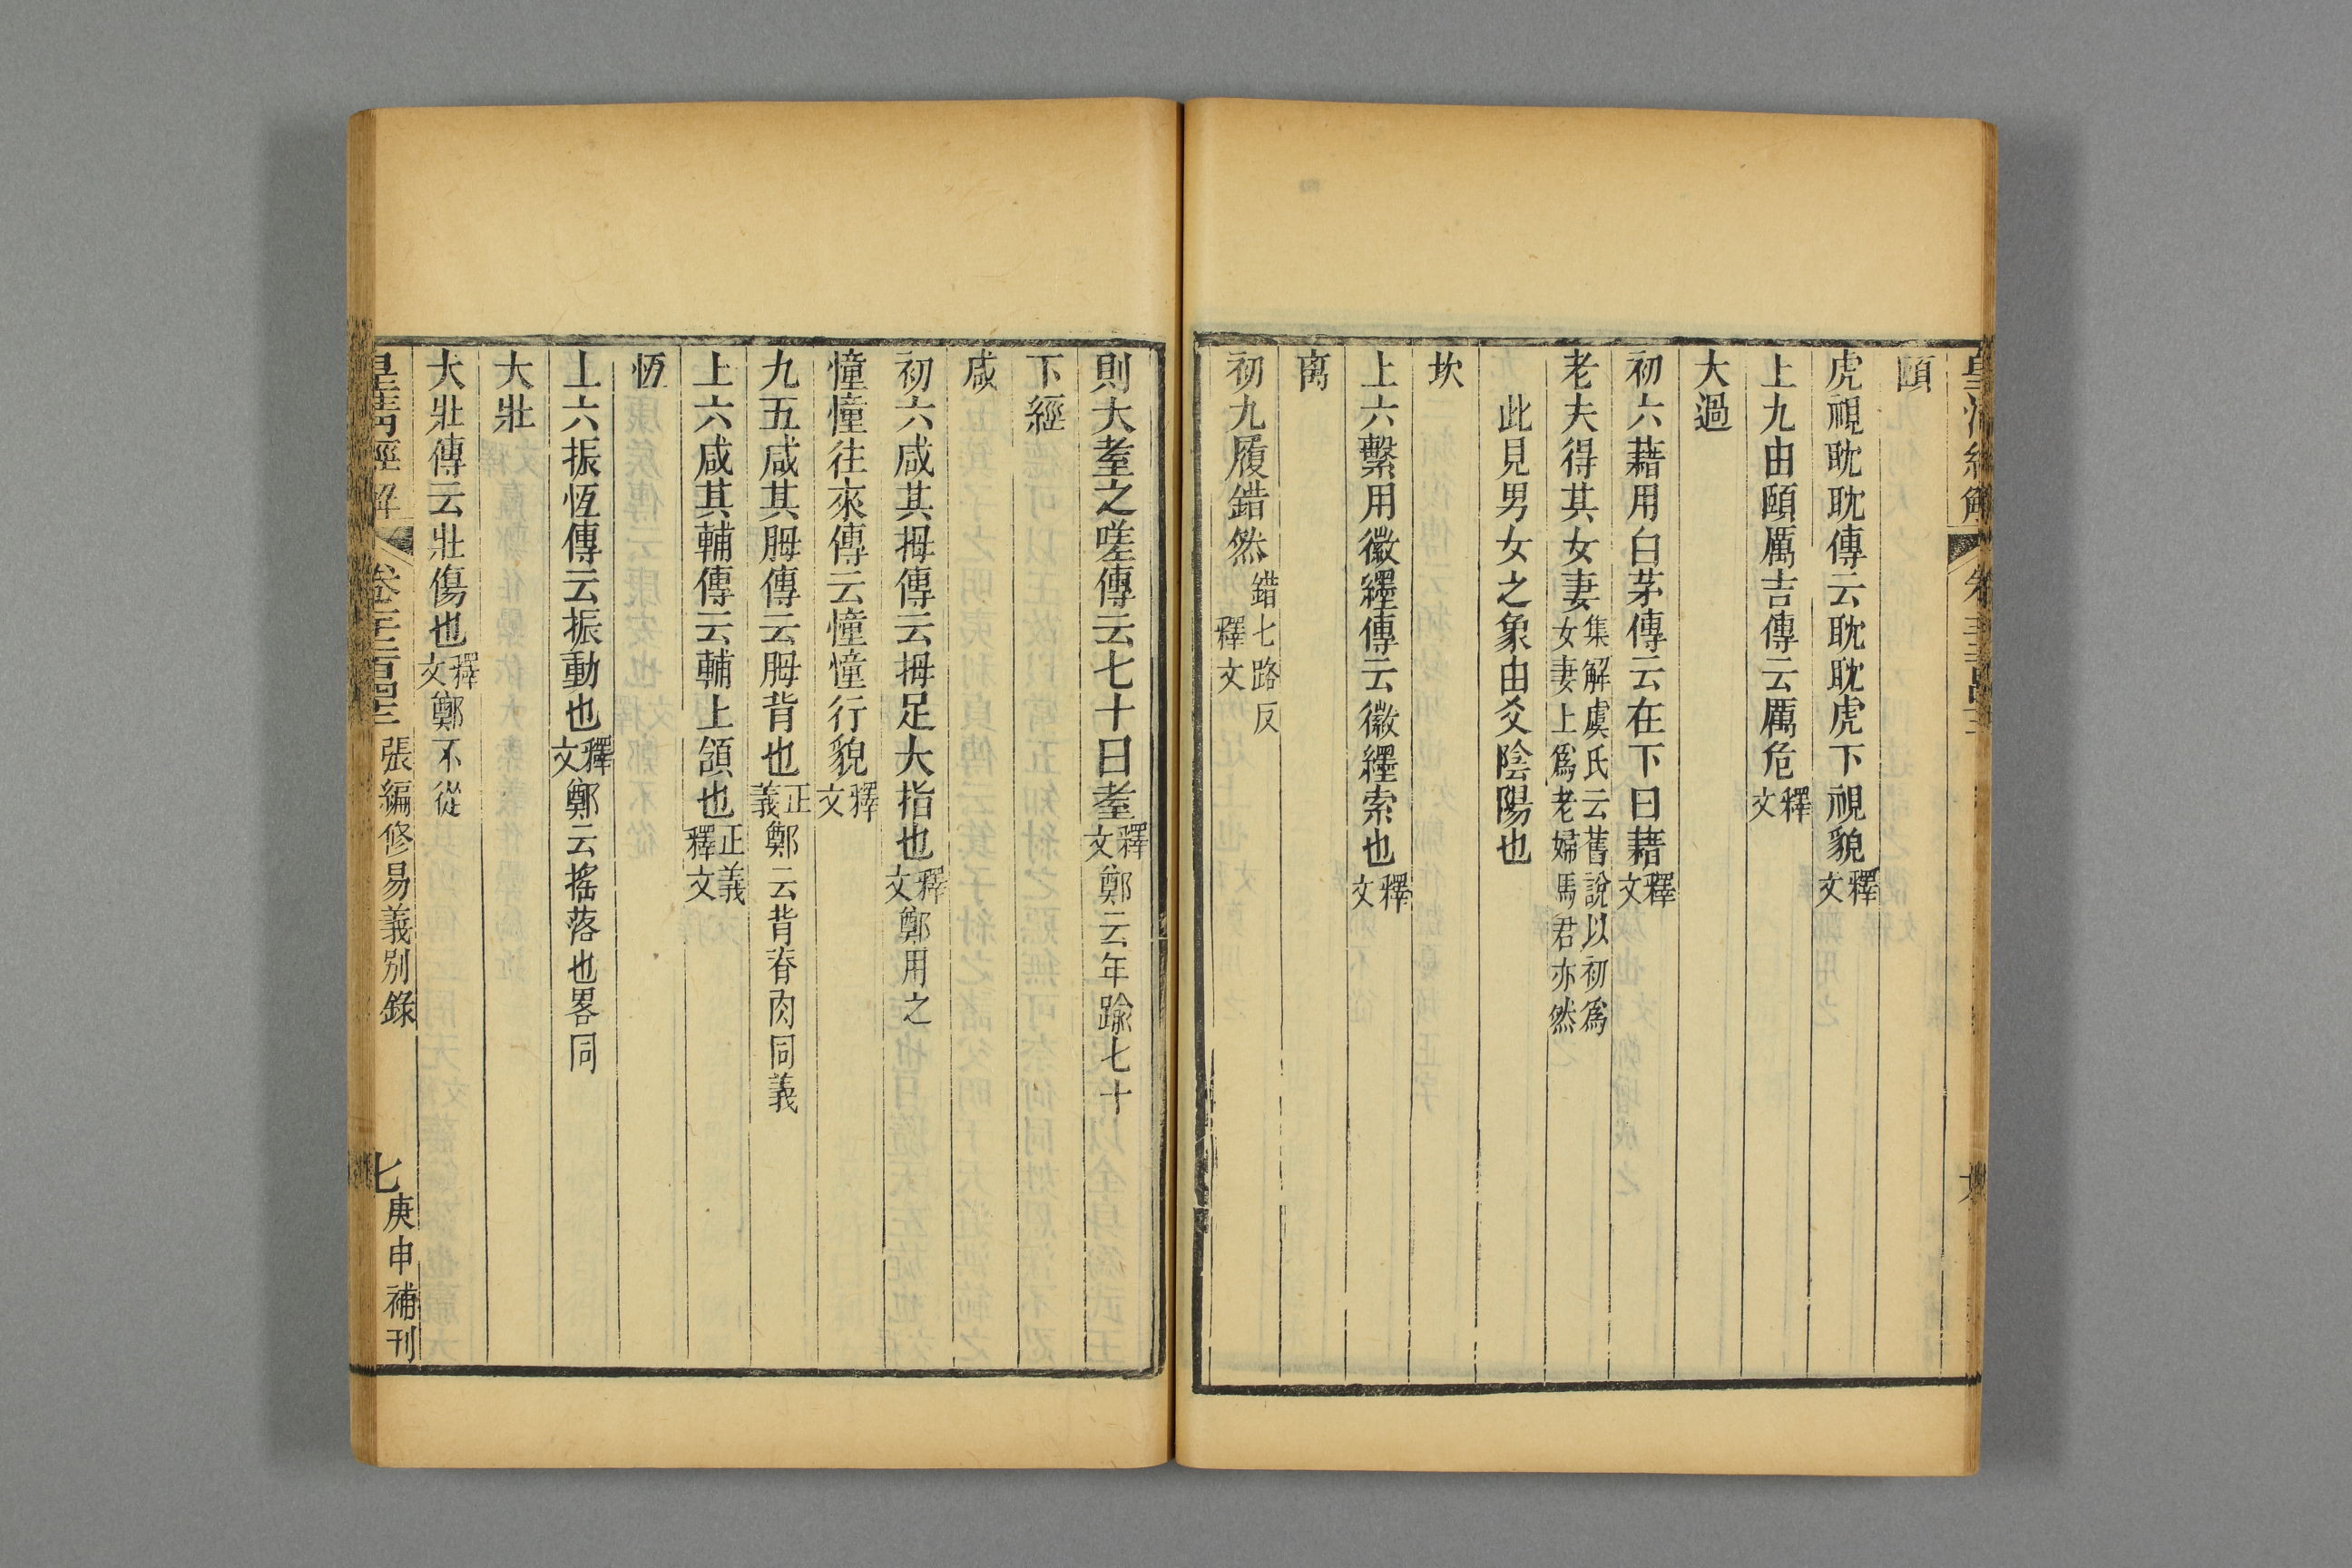 頤
虎視耽耽傳云耽耽虎下視貌釋文
上九由頤厲吉傳云厲危釋文
大過
初六藉用白茅傳云在下曰藉釋文
老夫得其女妻集解虞氏云舊說以初爲女妻上爲老婦馬君亦然
此見男女之象由爻陰陽也
坎
上六繫用徽纆傳云徽纆索也釋文
离
初九履錯然錯七路反釋文
則大耋之嗟傳云七十曰耋釋文鄭云年踰七十
下經
咸
初六咸其拇傳云拇足大指也釋文鄭用之
憧憧往來傳云憧憧行貌釋文
九五咸其脢傳云脢背也正義鄭云背脊肉同義
上六咸其輔傳云輔上頷也正義釋文
恆
上六振恆傳云振動也釋文鄭云搖落也畧同
大壯
大壯傳云壯傷也釋文鄭不從
皇清經解 張編修易義別錄 七 庚申補刊